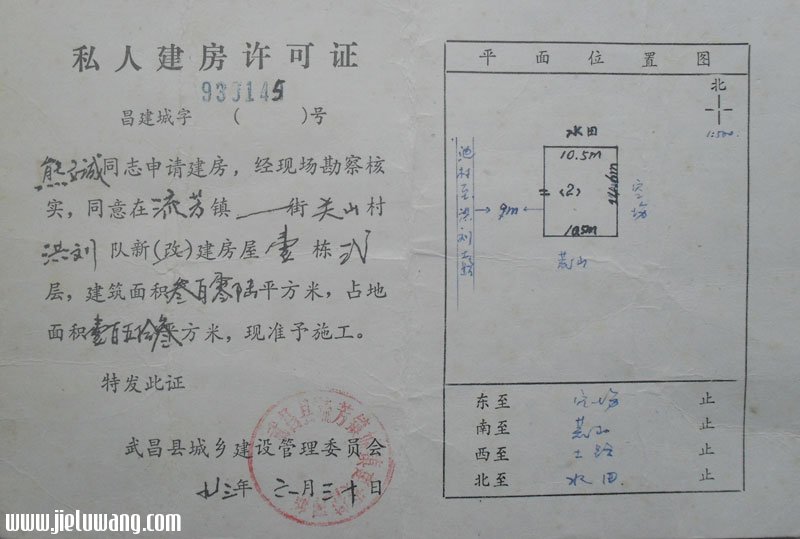 私人建房许可证
930145
昌建城字 （ ）号
熊诚同志申请建房，经现场勘察核
实，同意在流芳镇一街关山村
洪刘队新（改）建房屋壹栋弍
层，建筑面积叁百零陆平方米，占地
面积壹百五拾叁平方米，现准予施工。
特发此证
武昌县城乡建设管理委员会
九三年 月三十日
武昌县流芳镇
平面位置图
北
1:500
水田
10.5m
14.6m
=〈2〉
10.5m
9m
空场
荒山
池村至洪刘土路
东至 空场 止
南至 荒山 止
西至 土路 止
北至 水田 止
www.jieluwang.com